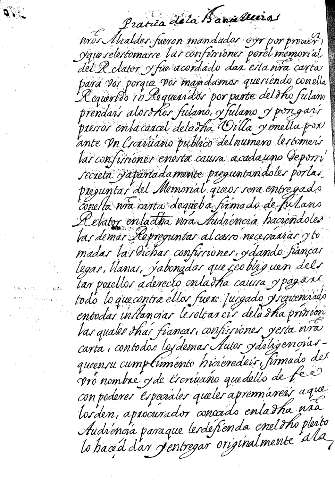 Pratica de la Chancillerias
nros Alcaldes fueron mandados oyr por provisⁿ
y que se les tomasen las confissiones por el memorial
del Relator y fue acordado dar esta nrã carta
para vos porque vos mandamos que siendo con ella
Requerido, o Requeridos por parte del dho fulano
prendais a los dhos fulano, y fulano y pongais
presos en la carcel de la dha Villa y en ella por
ante un Escrivano publico del numero les tomeis
las confissiones en esta causa a cada uno de por si
secreta y apartadamente preguntandoles por las
preguntas del Memorial que os sera entregado
con esta nrã carta que va firmado de fulano
Relator en la dha nrã Audiencia haciendoles
las demas Repreguntas al caso necesarias y to
madas las dichas confissiones, y dando fianças
legas, llanas, y abonadas que se obliguen de es
tar por ellos a derecho en la dha causa y pagarã
todo lo que contra ellos fuere juzgado y sentenciado
en todas instancias les soltareis de la dha prision
las quales dhas fianças, confissiones y esta nrã
carta, con todos los demas Autos y diligencias
que en su cumplimiento hicieredeis, firmado de
vrõ nombre, y de Escrivano que de ello de fee
con poderes especiales que les apremiareis a que
los den, a procurador conocido en la dha nrã
Audiencia para que les defienda en el dho pleito
lo haced dar y entregar originalmente a la